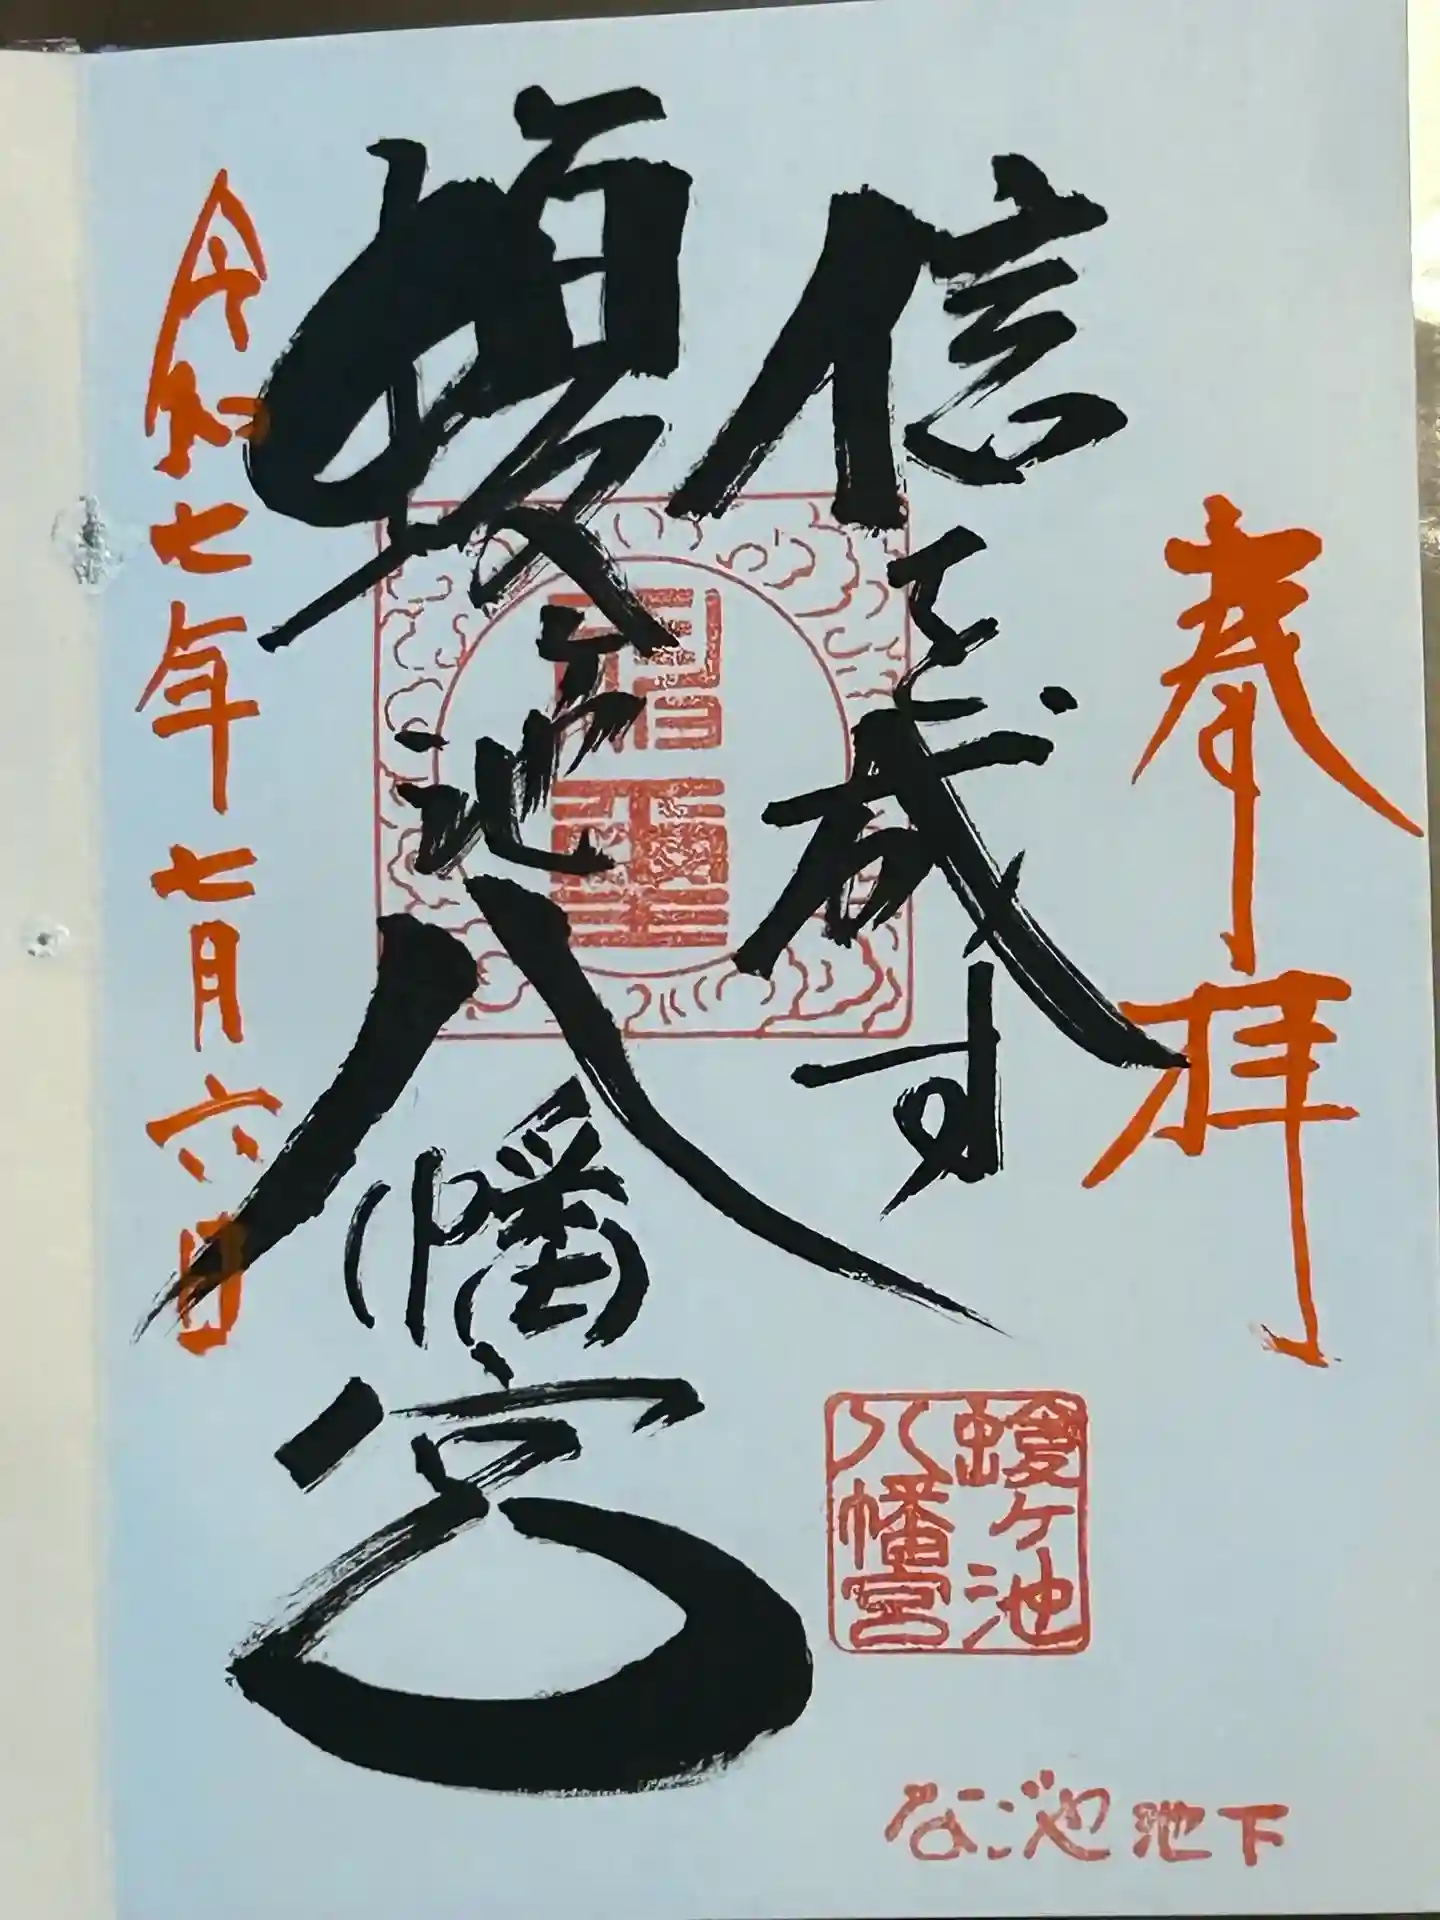 奉拝
信を成す
蝮ヶ池八幡宮
令和七年七月六日
蝮ヶ池
八幡宮
なごや池下